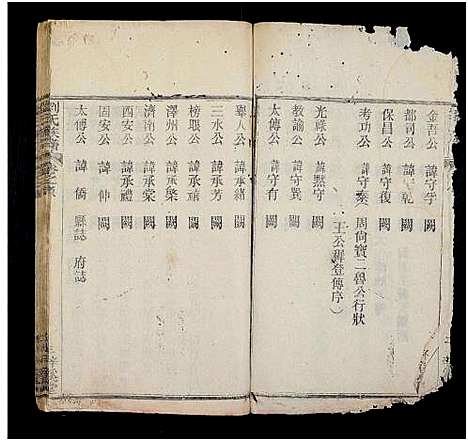 金吾公　諱守孚　闕
都司公　諱守乾　闕
保昌公　諱守復　闕
考功公　諱守蒙　周尙寶二魯公行狀
王公穉登傳序
光祿公　諱黙守　闕
教諭公　諱守巽　闕
太傅公　諱守有　闕
舉人公　諱承緒　闕
三水公　諱承芳　闕
榜眼公　諱承禧　闕
澤州公　諱承榮　闕
濟南公　諱承棠　闕
西安公　諱承禮　闕
固安公　諱伸　闕
太傅公　諱僑　縣誌　府誌
劉氏族譜